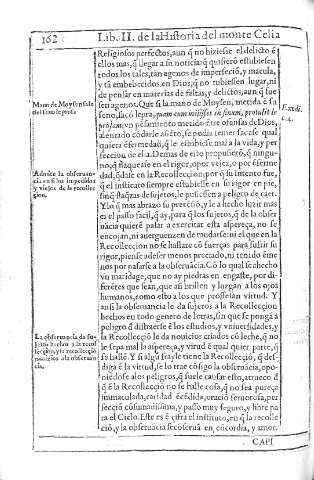 162
Lib. II. de la Historia del monte Celia
Religiosos perfectos, aun q̃ no hiziesse el delicto é
ellos mas, q̃ llegar a su noticia: q̃ quisieró estubiesen
todos los tales, tan agenos de imperfeció, y macula,
y tã embebecidos en Dios, q̃ no tubiessen lugar, ni
de pensar en materias de faltas, y delictos, aun q̃ fue
sen agenos. Que si la mano de Moysen, metida é su
seno, sacó lepra,
vn pésamiento metido être ofensas de Dios,
q̃ sea qual
quiera éfermedad, q̃ le estubiese mal a la vida, y per
feccion de ella. Demas de esto propusieró, q̃ ningu-
no, q̃ flaquease en el rigor, o por vejez, o por éferme
dad, q̃dase en la Recolleccion, por q̃ su intento fue,
q̃ el instituto siempre estubiesse en su rigor en pie,
sin q̃ flaq̃zas de sujetos, le pusiessen a peligro de caer.
Y lo q̃ mas abrazo su pretésió, y le a hecho luzir mas
es el passo facil, q̃ ay, para q̃ los sujetos, q̃ de la obser
uácia quieré passar a exercitar esta aspereça, no se
encojan, ni auerguenzen de mudarse: ni el que en la
Recolleccion no se hallare có fuerças para sufrir su
rigor, piense a de ser menos preciado, ni tenido é me
nos por pasarse a la obseruácia. Có lo qual se hecho
vn maridage, que no ay piedras en engaste, por di-
feretes que sean, que assi brillen y luzgan a los ojos
humanos, como esto a los que professan virtud. Y
ansi la obseruancia le da sujetos a la Recolleccion
hechos en todo genero de letras, sin que se ponga a
peligro d distraerse é los estudios, y vniuersidades, y
la Recollecció le da nouicios criados có leche, q̃ no
le sepa mal la aspereça, y virtud é qual quier parte, q̃
se hallé. Y si algú frayle tiene la Recollecció, q̃ des-
diga é la virtud, se lo trae cósigo la obseruácia, opo-
niédose a los peligros, q̃ suele causar esto, a trueco d
q̃ é la Recollecció no se halle cosa, q̃ no sea pureça
immaculada, caridad écédida, oració feruorosa, per
fecció cósumadissima, y passo muy seguro, y libre pa
ra el Cielo. Este es é cifra el instituto, en q̃ la recolle
ció, y la obseruácia se cóserua en cócordia, y amor.
CAPI
Mano de Moysen sale
del seno leprosa
Exodi.
c. 4.
Admite la obseruan-
cia en si los impedidos
y viejos de la recollec
cion.
La obseruancia da su-
jetos hechos a la reco
lección, y la recollecció
nouicios a la obserua
cia.